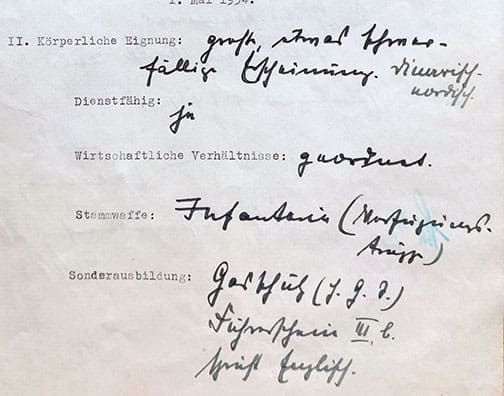 1. Mai 1934.
II. Körperliche Eignung: große, etwas schwer-
fällige Erscheinung. dinarisch-
nordisch.
Dienstfähig: ja
Wirtschaftliche Verhältnisse: geordnet.
Stammwaffe: Infanterie (Verfügungs-
truppe)
Sonderausbildung: Gasschutz (J. G. J.)
Führerschein III, b.
spricht Englisch.